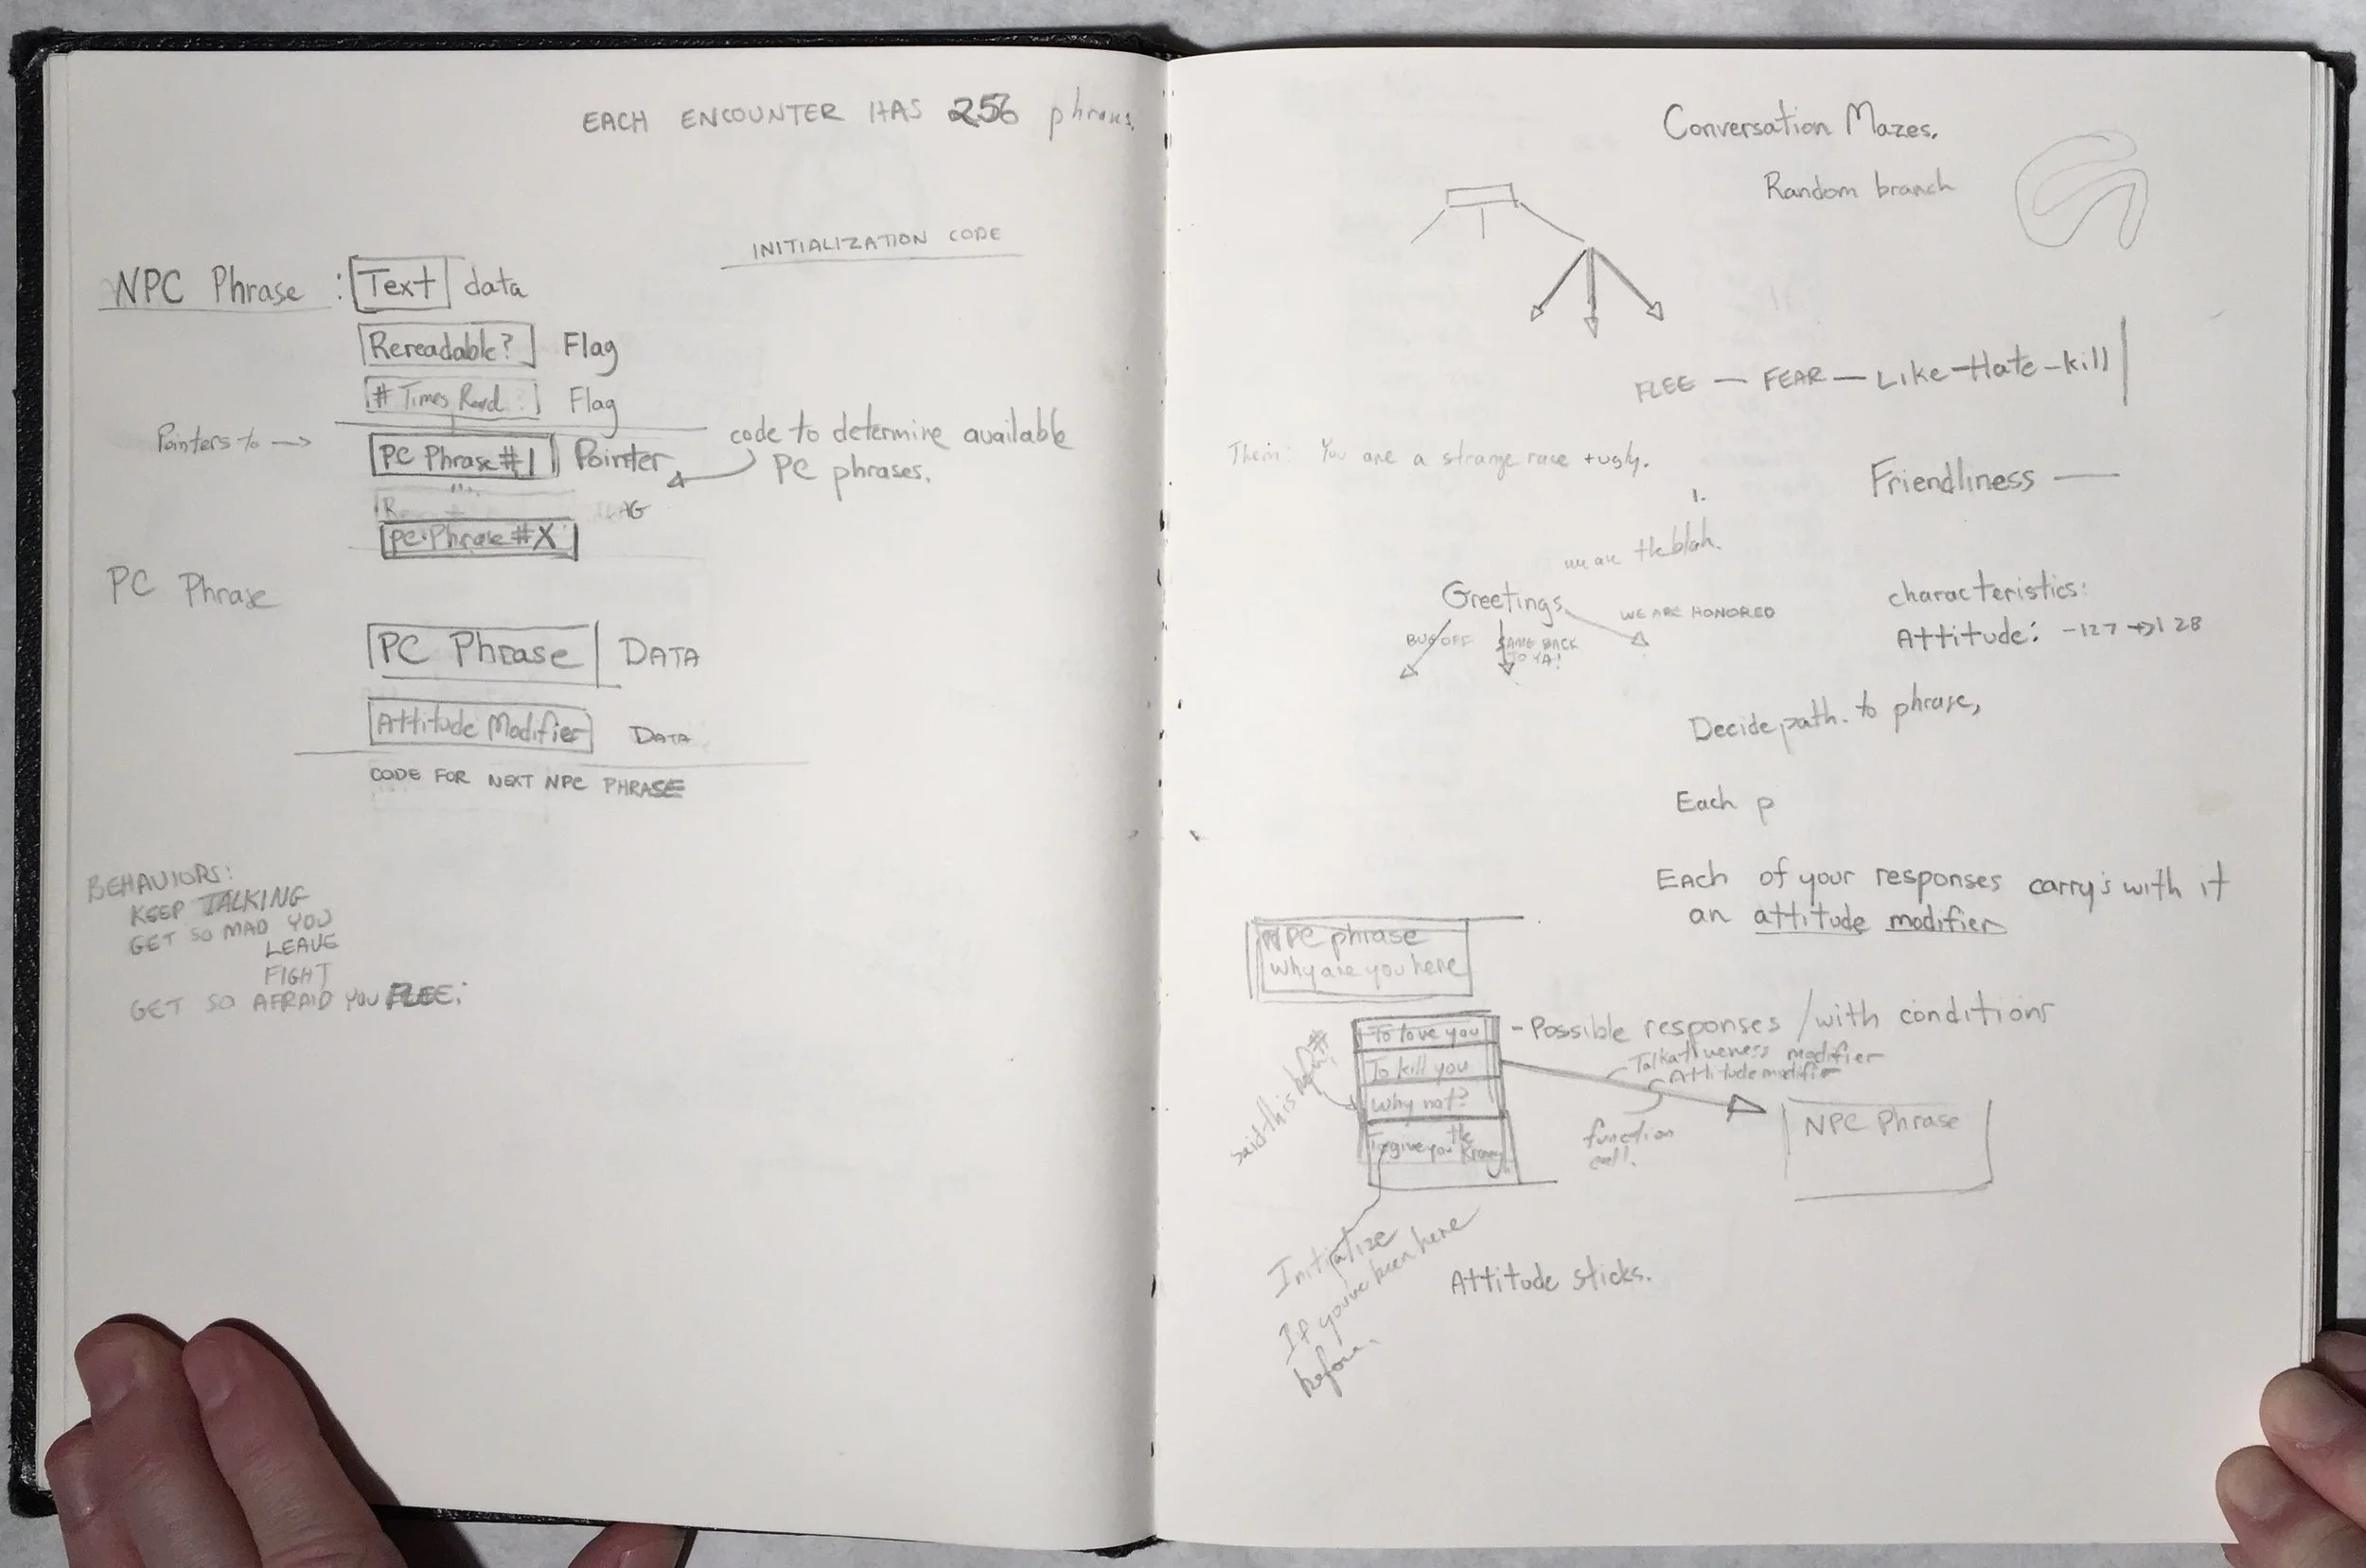 EACH ENCOUNTER HAS 256 phrases.
INITIALIZATION CODE
NPC Phrase : Text data
Rereadable? Flag
# Times Read ? Flag
Pointers to → PC Phrase #1 Pointer
code to determine available
PC phrases.
PC Phrase #X
PC Phrase
PC Phrase DATA
Attitude Modifier DATA
CODE FOR NEXT NPC PHRASE
BEHAVIORS:
KEEP TALKING
GET SO MAD YOU
LEAVE
FIGHT
GET SO AFRAID YOU FLEE;
Conversation Mazes.
Random branch
FLEE — FEAR — Like - Hate - kill
Them: You are a strange race + ugly.
Friendliness —
1.
we are the blah.
Greetings
BUG OFF
SAME BACK
TO YA!
WE ARE HONORED
characteristics:
Attitude: -127 → 128
Decide path to phrase,
Each p
Each of your responses carry's with it
an attitude modifier
NPC phrase
Why are you here
To love you
To kill you
Why not?
To give you the
- Possible responses / with conditions
Talkativeness modifier
Attitude modifier
function
call.
NPC Phrase
said this
Initialize
If you've been here
before.
Attitude sticks.